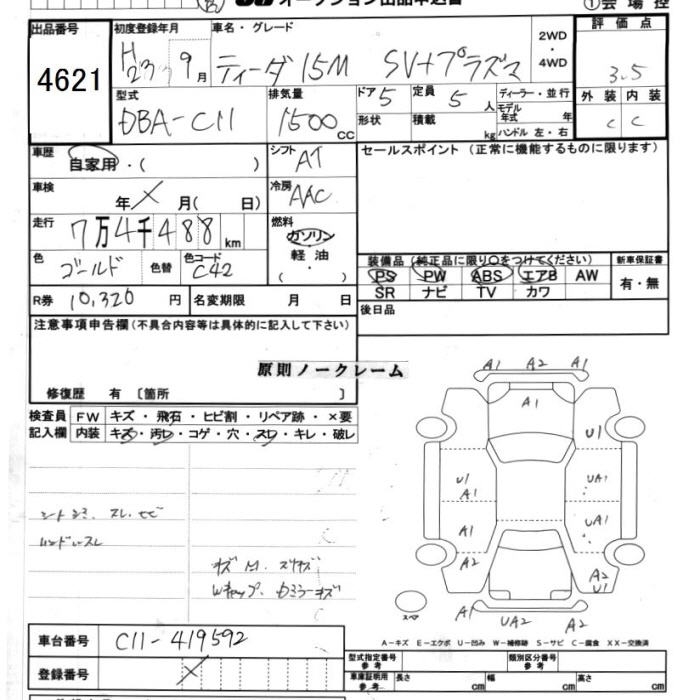 オークション出品申込書
①会場控
出品番号 4621
初度登録年月 H23 9月
車名・グレード ティーダ 15M SV+プラズマ
2WD・4WD
評価点 3.5
型式 DBA-C11
排気量 1500 CC
ドア 5 形状
定員 5人 積載 kg
ディーラー・並行
モデル年式 年
ハンドル 左・右
外装 内装
C C
車歴 自家用・( )
シフト AT
セールスポイント (正常に機能するものに限ります)
車検 年 X 月( 日)
冷房 AAC
走行 7万4千488 km
燃料 ガソリン 軽油 ( ・ )
色 ゴールド 色替 色コード C42
装備品 (純正品に限り○をつけてください)
新車保証書
PS PW ABS エアB AW
有・無
SR ナビ TV カワ
R券 10,320 円 名変期限 月 日
後日品
注意事項申告欄(不具合内容等は具体的に記入して下さい)
原則ノークレーム
修復歴 有 〔箇所 〕
検査員 FW キズ・飛石・ヒビ割・リペア跡・×要
記入欄 内装 キズ・汚レ・コゲ・穴・スレ・キレ・破レ
A1 A2 A1
A1
U1
U1 A1
UA1
A1
UA1
A2
A2 U1
A1 UA2 A2
スペア
シートシミ. スレ.
ハンドルスレ
A-キズ E-エクボ U-凹み W-補修跡 S-サビ C-腐食 XX-交換済
車台番号 C11-419592
登録番号 X
型式指定番号 参考
類別区分番号 参考
車庫証明用 参考 長さ cm 幅 cm 高さ cm